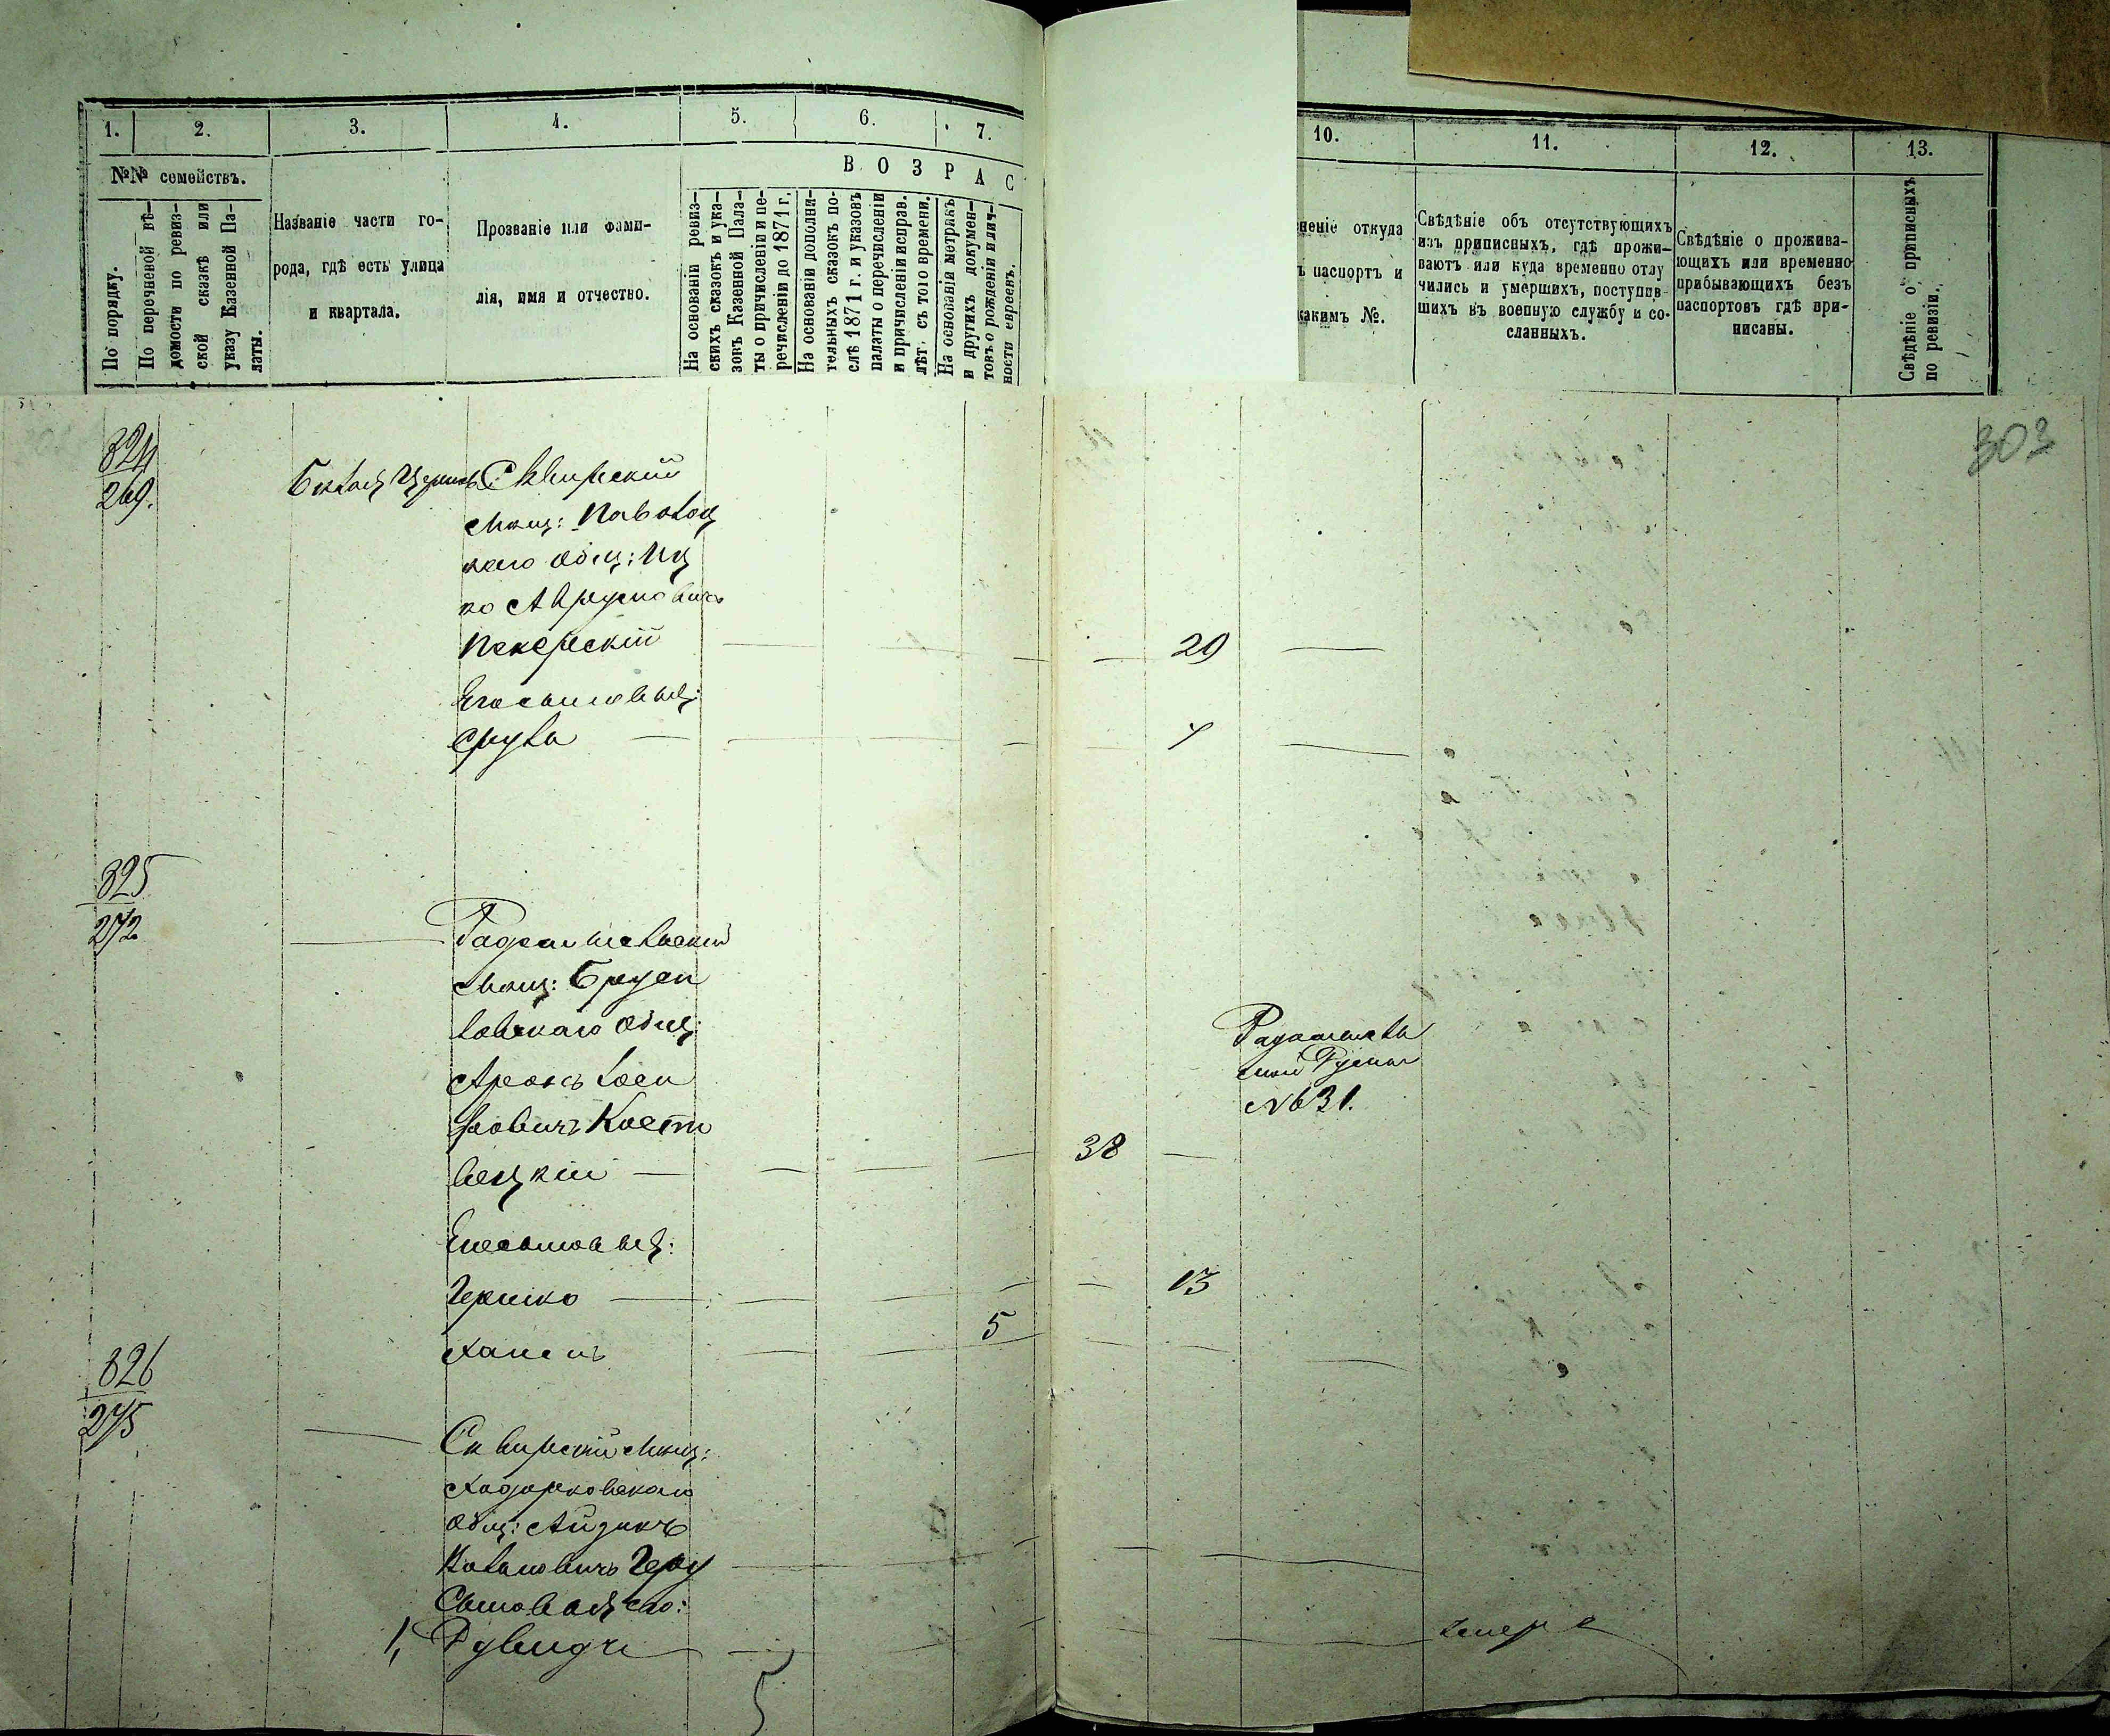 1.
2.
3.
4.
5.
6.
7.
10.
11.
12.
13.
№№ семействъ.
По порядку.
По перечневой вѣ-
домости по ревиз-
ской сказкѣ или
указу Казенной Па-
латы.
Названіе части го-
рода, гдѣ есть улица
и квартала.
Прозваніе или фами-
лія, имя и отчество.
ВОЗРАС
На основаніи ревиз-
скихъ сказокъ и ука-
зовъ Казенной Пала-
ты о причисленіи и пе-
речисленіи до 1871 г.
На основаніи дополни-
тельныхъ сказокъ по-
слѣ 1871 г. и указовъ
палаты о перечисленіи
и причисленіи исправ.
лѣт. съ того времени.
На основаніи метрикъ
и другихъ докумен-
товъ о рожденіи и лич-
ности евреевъ.
неніе откуда
ъ паспортъ и
какимъ №.
Свѣдѣніе объ отсутствующихъ
изъ приписныхъ, гдѣ прожи-
ваютъ или куда временно отлу
чились и умершихъ, поступив-
шихъ въ военную службу и со-
сланныхъ.
Свѣдѣніе о прожива-
ющихъ или временно
прибывающихъ безъ
паспортовъ гдѣ при-
писаны.
Свѣдѣніе о приписныхъ
по ревизіи.
303
324
269.
Сквирскій
Мѣщ: Паволоц
каго Общ: Иц
ко Аврумовичъ
Пекерскій
29
Его сыновья:
Срулъ
7
325
272
Радомысльскій
Мѣщ: Брусил
ловскаго Общ:
Аронъ Іосі
фовичъ Кост
вецкій
38
Радомысль
№631.
Его сыновья:
Гершко
13
Хаимъ
5
326
275
Сквирскій Мѣщ:
Ходорковскаго
Общ: Айзикъ
Сыновья его:
1,
умеръ